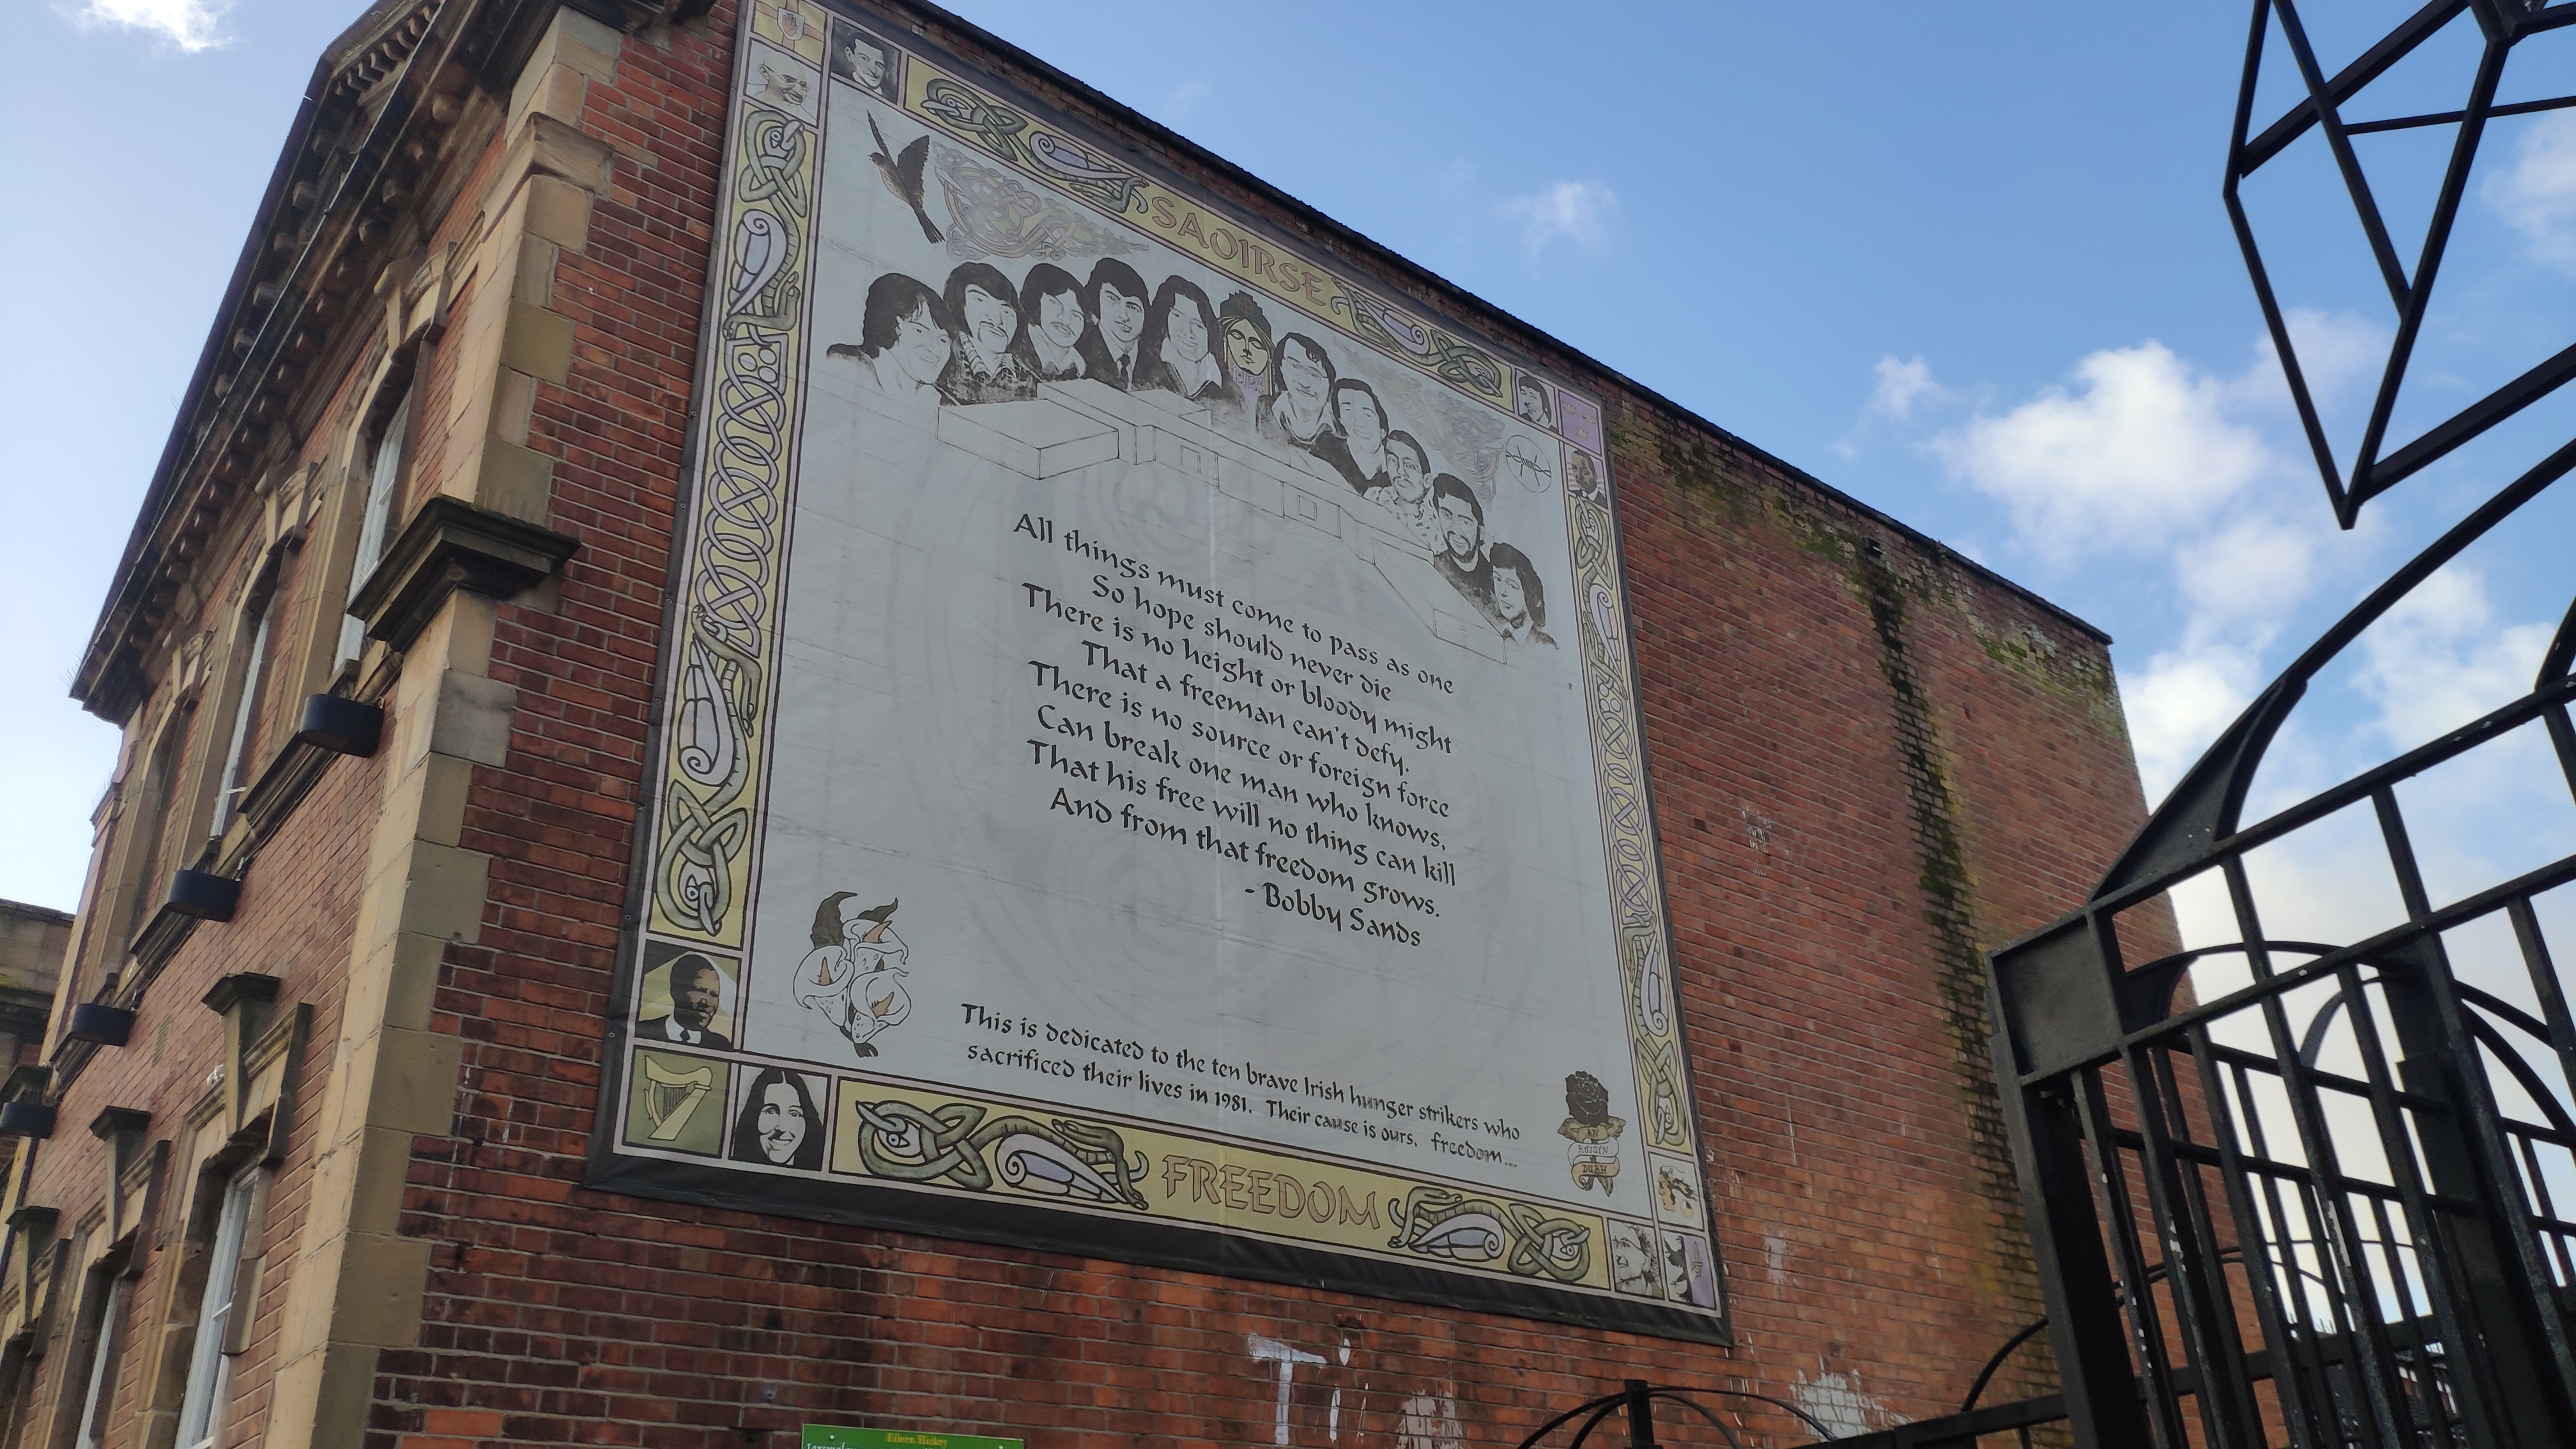 SAOIRSE
All things must come to pass as one
So hope should never die
There is no height or bloody might
That a freeman can't defy.
There is no source or foreign force
Can break one man who knows,
That his free will no thing can kill
And from that freedom grows.
- Bobby Sands
This is dedicated to the ten brave Irish hunger strikers who
sacrificed their lives in 1981. Their cause is ours. freedom....
AN
RÓISÍN
DUBH
FREEDOM
Eileen Hickey